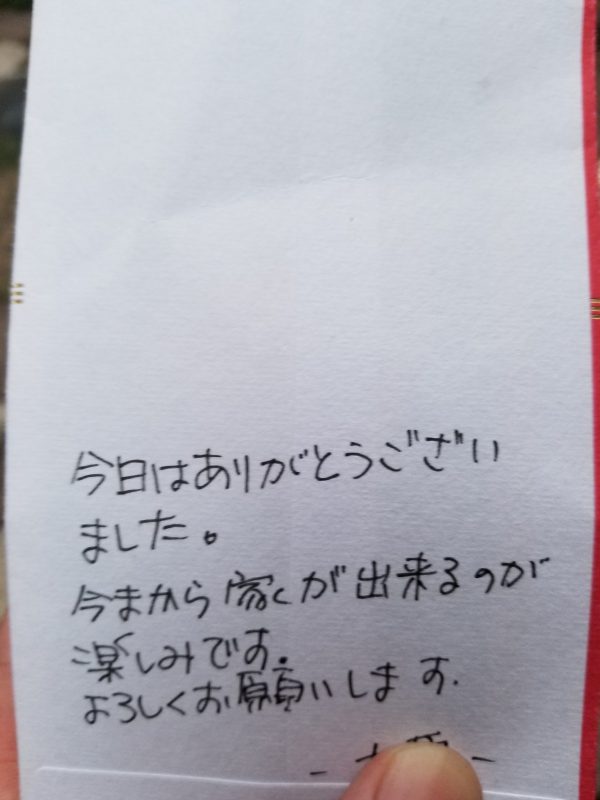 今日はありがとうござい
ました。
今まから家くが出来るのが
楽しみです.
よろしくお願いします.